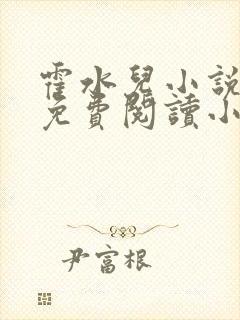 霍水兒小說
免費閱讀小
尹富根